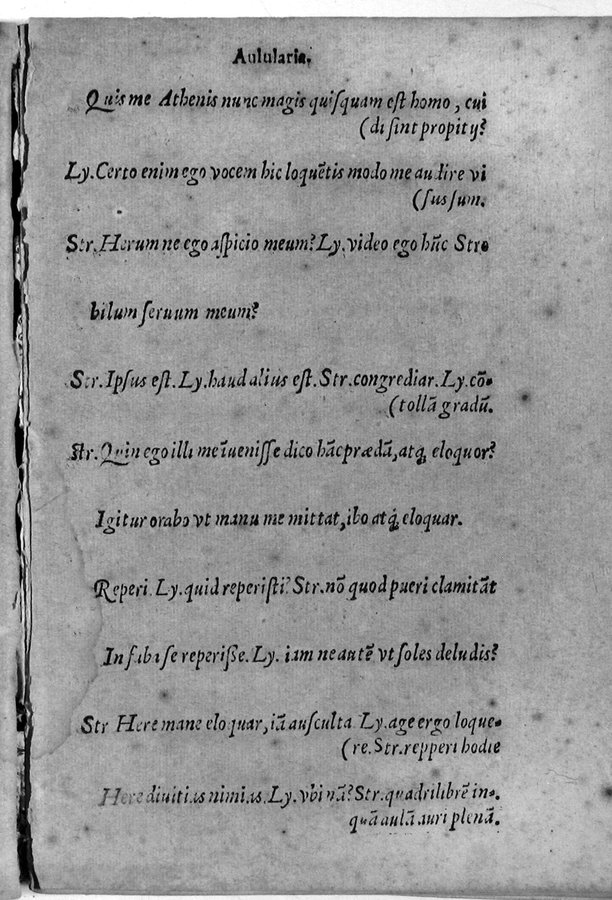 Aulularia.
Quis me Athenis nunc magis quiſquam eſt homo, cui
(di ſint propitij?
Ly. Certo enim ego vocem hic loquẽtis modo me audire vi
(ſus ſum.
Str. Herum ne ego aſpicio meum? Ly. video ego hũc Stro
bilum ſeruum meum?
Str. Ipſus eſt. Ly. haud alius eſt. Str. congrediar. Ly. cõ-
(tollã gradũ.
Str. Quin ego illi me ĩueniſſe dico hãc prædã, atq; eloquor?
Igitur orabo vt manu me mittat, ibo atq; eloquar.
Reperi. Ly. quid reperiſti? Str. nõ quod pueri clamitãt
In faba ſe reperiſſe. Ly. iam ne autẽ vt ſoles deludis?
Str Here mane eloquar, iã auſculta Ly. age ergo loque-
(re. Str. repperi hodie
Here diuitias nimias. Ly. vbi nã? Str. quadrilibrẽ in-
quã aulã auri plenã.